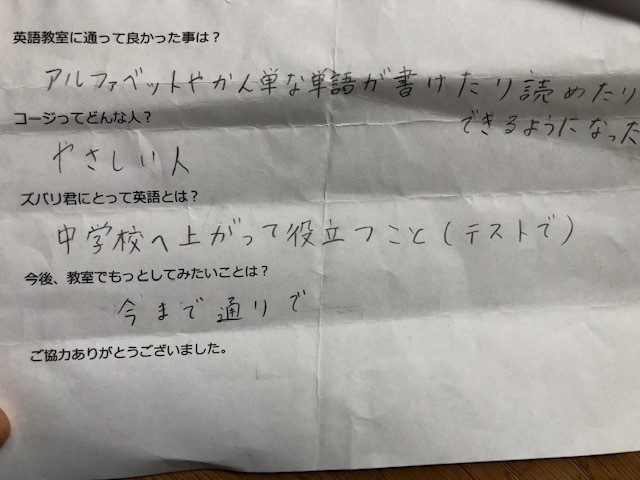 英語教室に通って良かった事は？
アルファベットやかん単な単語が書けたり読めたり
できるようになった
コージってどんな人？
やさしい人
ズバリ君にとって英語とは？
中学校へ上がって役立つこと(テストで)
今後、教室でもっとしてみたいことは？
今まで通りで
ご協力ありがとうございました。